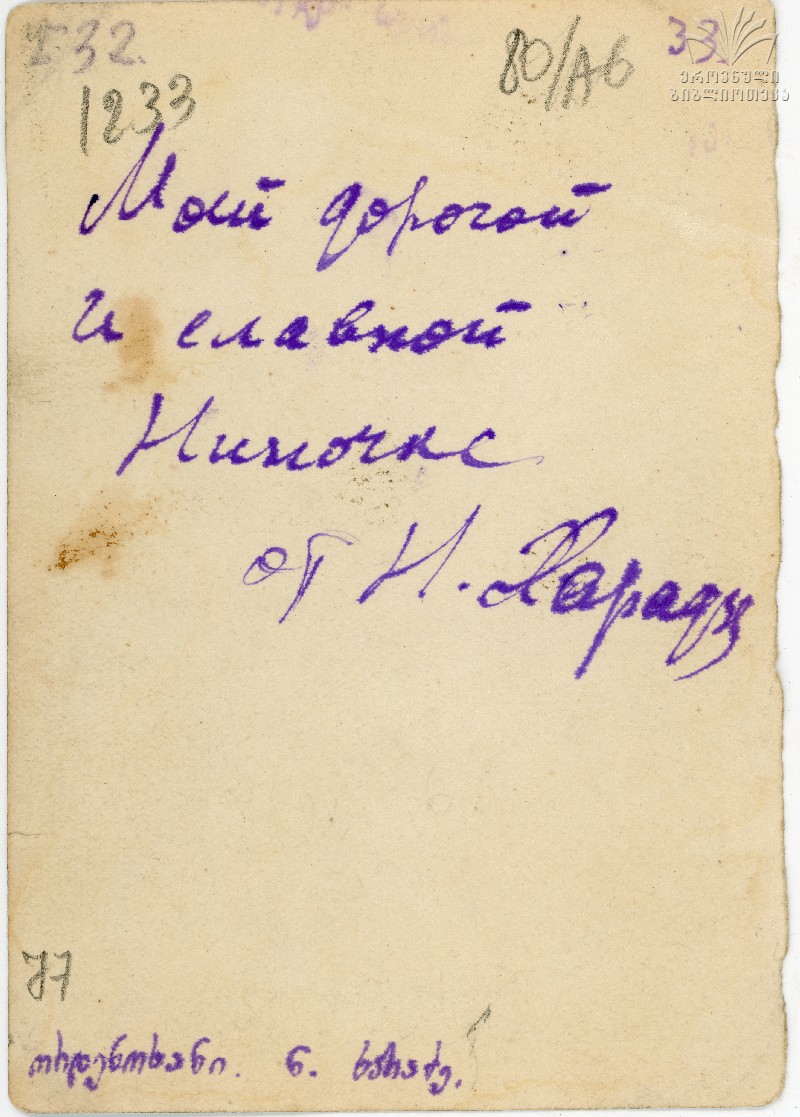 132.
1233
80/Аб
33.
ეროვნული
ბიბლიოთეკა
Моей дорогой
и славной
Ниночке
от Н. Харадзе
77
ორდენოსანი. ნ. ხარაძე.